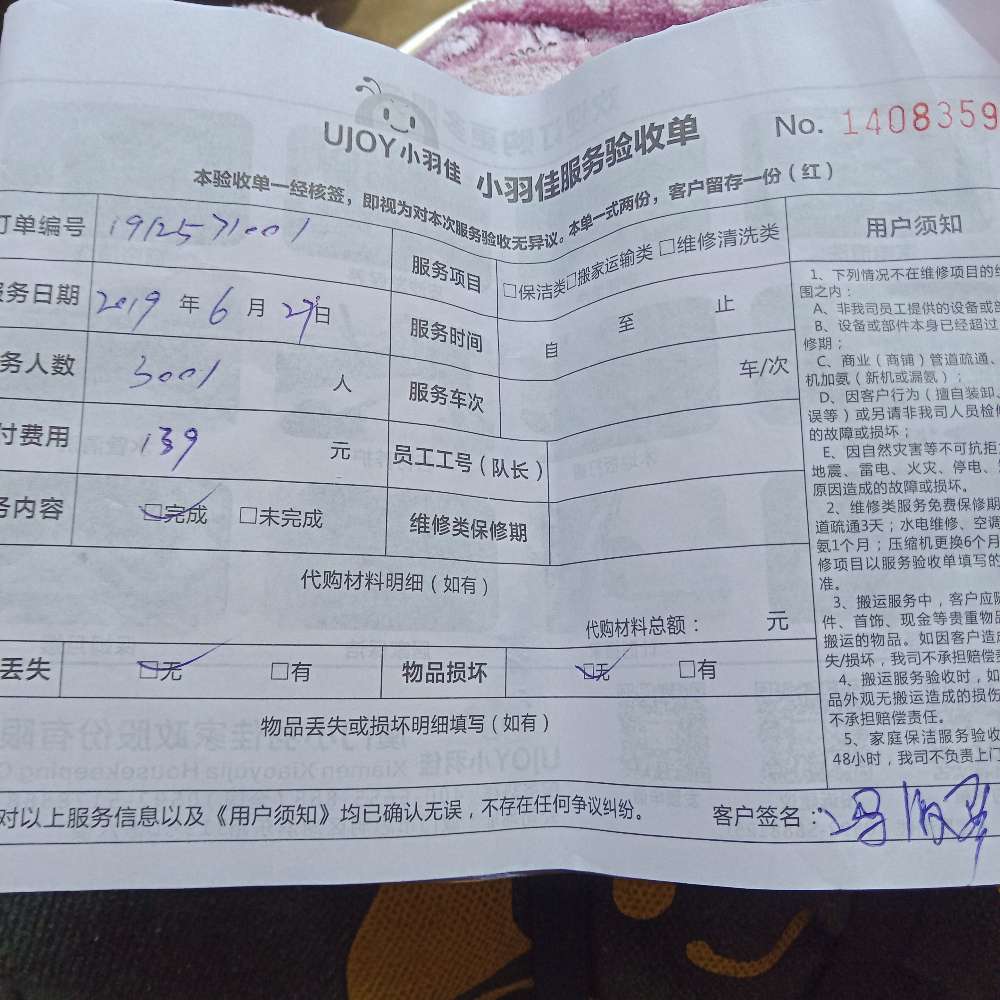 UJOY小羽佳 小羽佳服务验收单
No. 1408359
本验收单一经核签，即视为对本次服务验收无异议。本单一式两份，客户留存一份（红）
订单编号 1912571001 服务项目 □保洁类□搬家运输类 □维修清洗类
服务日期 2019 年 6 月 27日 服务时间 自 至 止
务人数 3001 人 服务车次 车/次
付费用 139 元 员工工号（队长）
务内容 □完成 □未完成 维修类保修期
代购材料明细（如有）
代购材料总额： 元
丢失 □无 □有 物品损坏 □无 □有
物品丢失或损坏明细填写（如有）
对以上服务信息以及《用户须知》均已确认无误，不存在任何争议纠纷。 客户签名：冯
用户须知
1、下列情况不在维修项目的
围之内：
A、非我司员工提供的设备或
B、设备或部件本身已经超过
修期；
C、商业（商铺）管道疏通、
机加氨（新机或漏氨）；
D、因客户行为（擅自装卸、
误等）或另请非我司人员检
的故障或损坏；
E、因自然灾害等不可抗拒
地震、雷电、火灾、停电、
原因造成的故障或损坏。
2、维修类服务免费保修期
道疏通3天；水电维修、空调
氨1个月；压缩机更换6个月
修项目以服务验收单填写的
准。
3、搬运服务中，客户应
件、首饰、现金等贵重物品
搬运的物品。如因客户造
失/损坏，我司不承担赔偿
4、搬运服务验收时，如
品外观无搬运造成的损伤
不承担赔偿责任。
5、家庭保洁服务验收
48小时，我司不负责上门